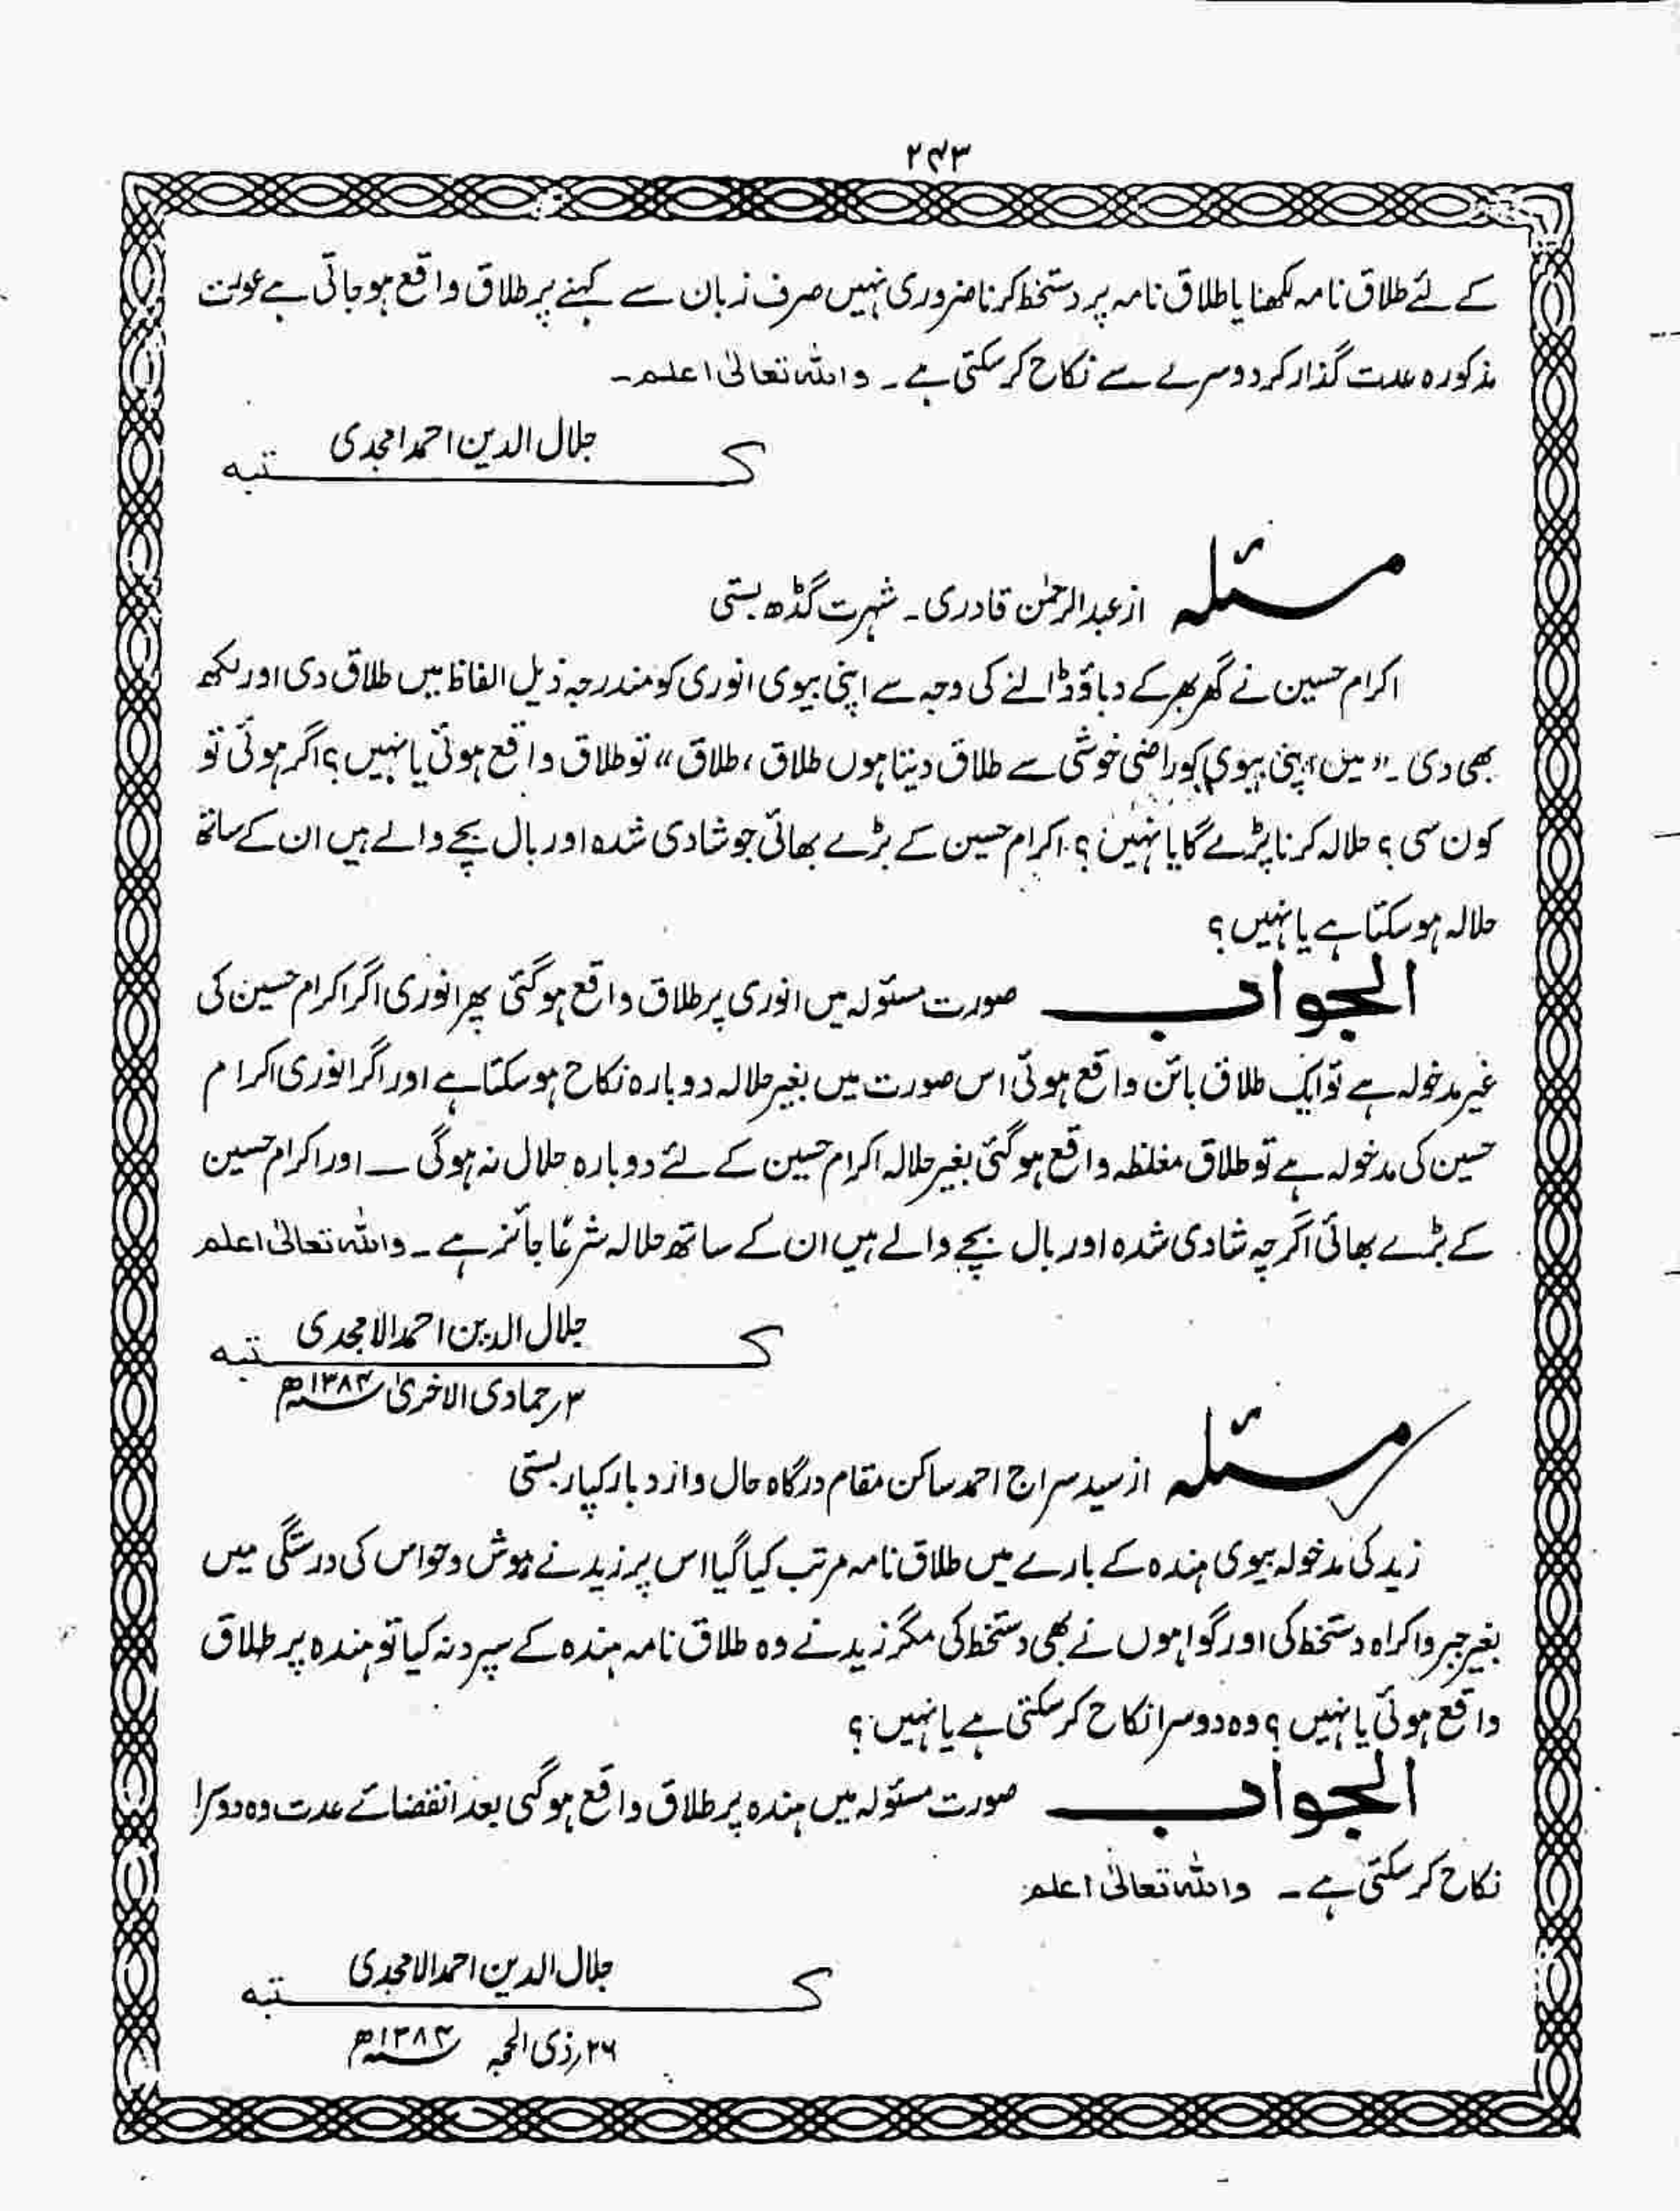 ۲۴۳
کے لئے طلاق نامہ لکھنا یا طلاق نامہ پر دستخط کرنا ضروری نہیں صرف زبان سے کہنے پر طلاق واقع ہو جاتی ہے عورت
مذکورہ عدت گذار کر دوسرے سے نکاح کر سکتی ہے۔ واللہ تعالیٰ اعلم۔
جلال الدین احمد امجدی
کتبہ
مسئلہ از عبدالرحمٰن قادری۔ شہرت گڈھ بستی
اکرام حسین نے گھر بھر کے دباؤ ڈالنے کی وجہ سے اپنی بیوی انوری کو مندرجہ ذیل الفاظ میں طلاق دی اور لکھ
بھی دی۔ "میں اپنی بیوی کو راضی خوشی سے طلاق دیتا ہوں طلاق، طلاق" تو طلاق واقع ہوئی یا نہیں؟ اگر ہوئی تو
کون سی؟ حلالہ کرنا پڑے گا یا نہیں؟ اکرام حسین کے بڑے بھائی جو شادی شدہ اور بال بچے والے ہیں ان کے ساتھ
حلالہ ہو سکتا ہے یا نہیں؟
الجواب صورت مسئولہ میں انوری پر طلاق واقع ہو گئی پھر انوری اگر اکرام حسین کی
غیر مدخولہ ہے تو ایک طلاق بائن واقع ہوئی اس صورت میں بغیر حلالہ دوبارہ نکاح ہو سکتا ہے اور اگر انوری اکرام
حسین کی مدخولہ ہے تو طلاق مغلظہ واقع ہو گئی بغیر حلالہ اکرام حسین کے لئے دوبارہ حلال نہ ہوگی ــ اور اکرام حسین
کے بڑے بھائی اگرچہ شادی شدہ اور بال بچے والے ہیں ان کے ساتھ حلالہ شرعًا جائز ہے۔ واللہ تعالیٰ اعلم
جلال الدین احمد الامجدی
کتبہ
۳؍ جمادی الاخریٰ ۱۳۸۴ھ
مسئلہ از سید سراج احمد ساکن مقام درگاہ حال وارد بار کپار بستی
زید کی مدخولہ بیوی ہندہ کے بارے میں طلاق نامہ مرتب کیا گیا اس پر زید نے ہوش و حواس کی درستگی میں
بغیر جبر و اکراہ دستخط کی اور گواہوں نے بھی دستخط کی مگر زید نے وہ طلاق نامہ ہندہ کے سپرد نہ کیا تو ہندہ پر طلاق
واقع ہوئی یا نہیں؟ وہ دوسرا نکاح کر سکتی ہے یا نہیں؟
الجواب صورت مسئولہ میں ہندہ پر طلاق واقع ہو گئی بعد انقضائے عدت وہ دوسرا
نکاح کر سکتی ہے۔ واللہ تعالیٰ اعلم
جلال الدین احمد الامجدی
کتبہ
۲۶؍ ذی الحجہ ۱۳۸۳ھ